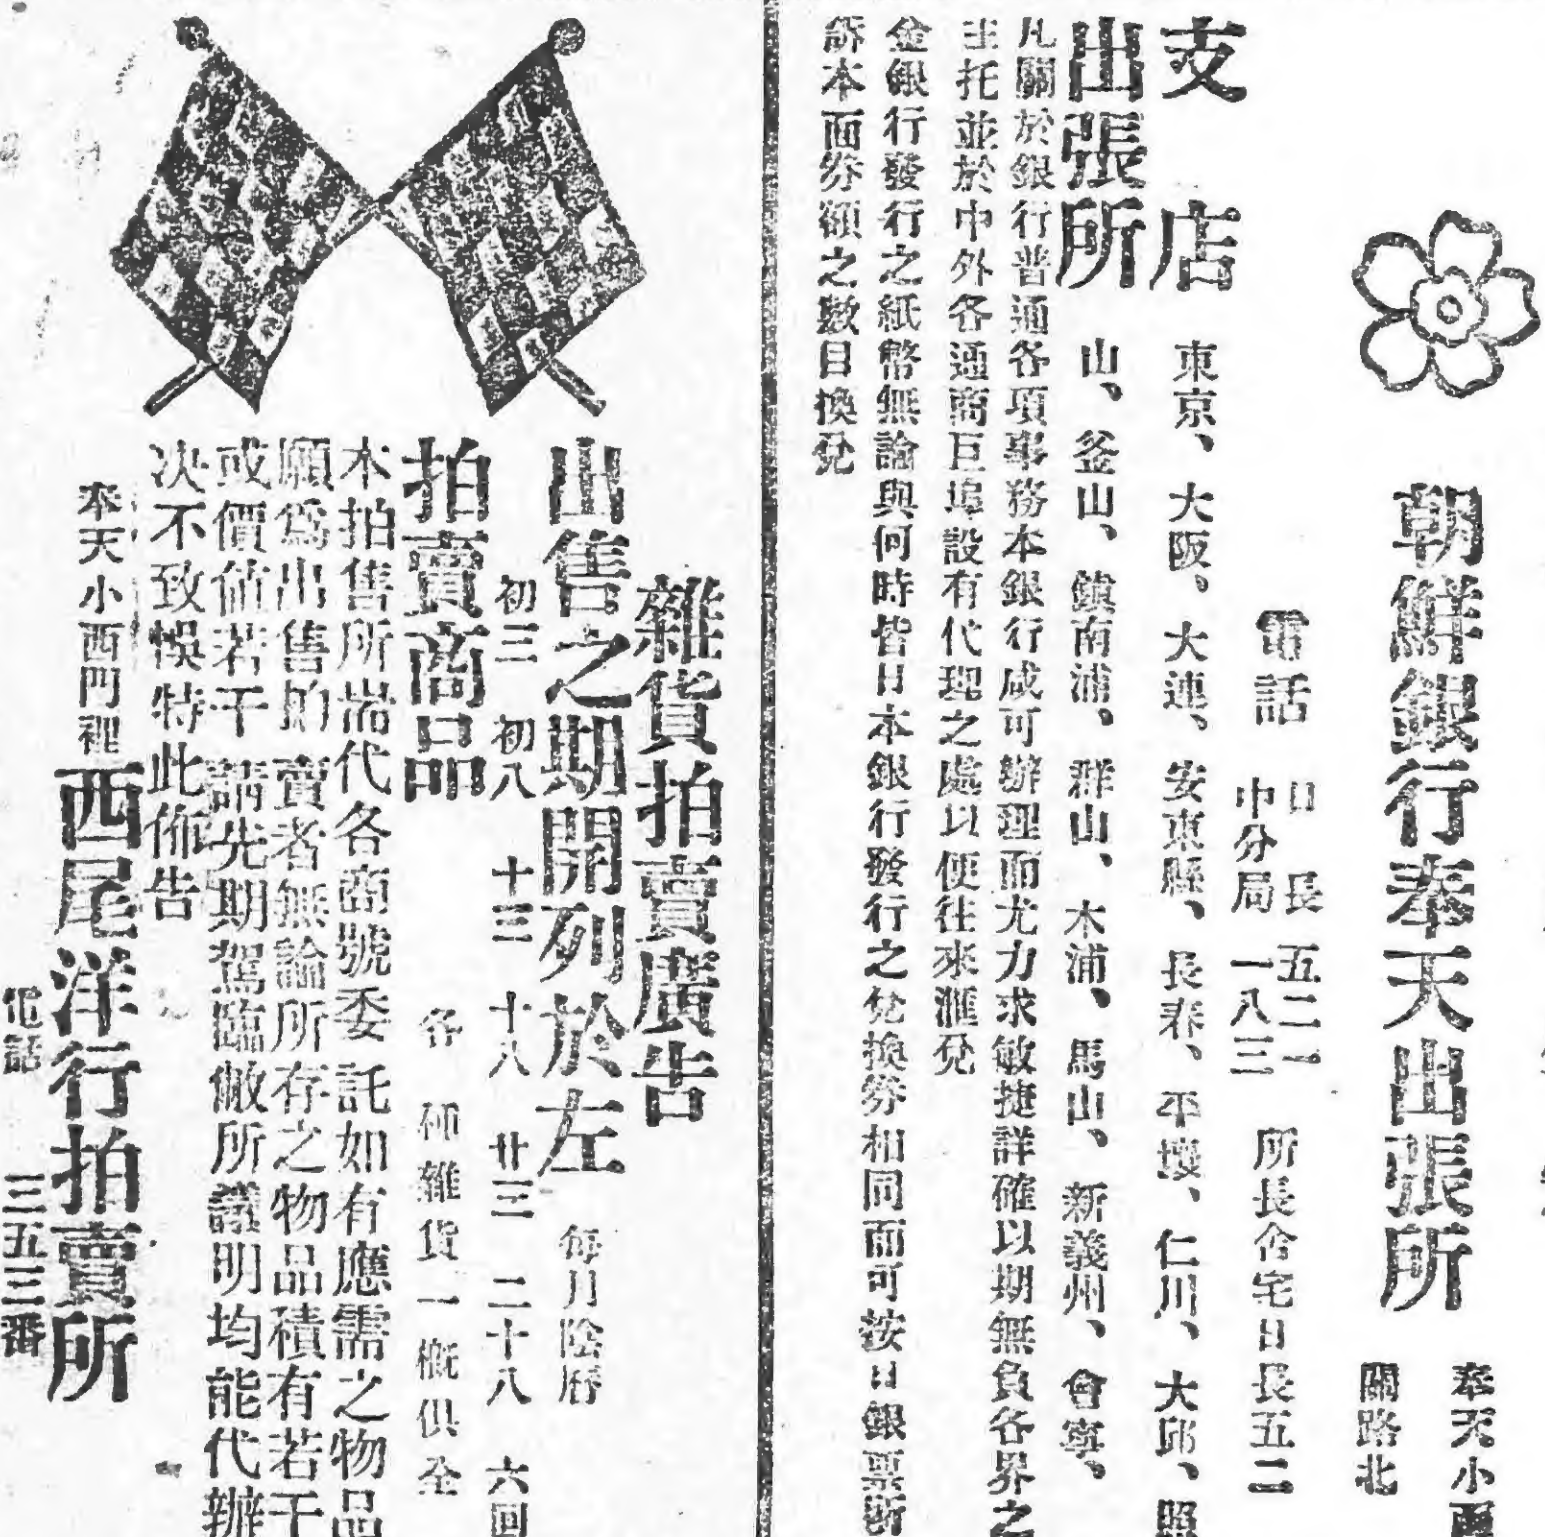 奉天小西
關路北
朝鮮銀行奉天出張所
電話
日長五二一
中分局一八三
所長舍宅日長五二
支店
東京、大阪、大連、安東縣、長春、平壤、仁川、大邱、
出張所
山、釜山、鎮南浦、群山、木浦、馬山、新義州、會寧、
凡關於銀行普通各項事務本銀行咸可辦理而尤力求敏捷詳確以期無負各界之
主托並於中外各通商巨埠設有代理之處以便往來滙兌
金銀行發行之紙幣無論與何時皆日本銀行發行之兌換券相同而可按日銀票
本面券額之數目換兌
雜貨拍賣廣告
出售之期開列於左
每月陰曆
初三 初八 十三 十八 廿三 二十八 六回
拍賣商品
各種雜貨一概俱全
本拍售所耑代各商號委託如有應需之物品
願爲出售拍賣者無論所存之物品積有若干
或價值若干請先期駕臨敝所議明均能代辦
决不致悞特此佈告
奉天小西門裡
西尾洋行拍賣所
電話 三五三番